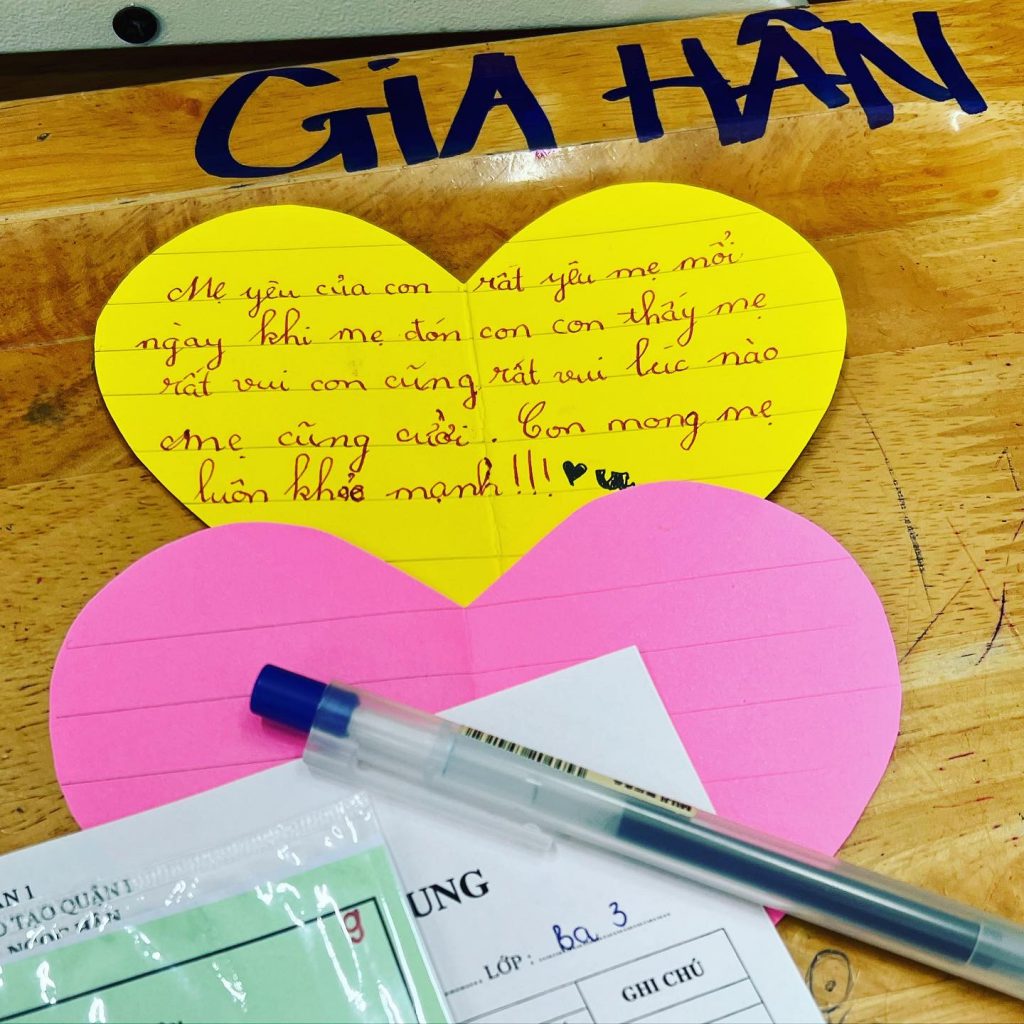 GiA HÂN
Mẹ yêu của con rất yêu mẹ mỗi
ngày khi mẹ đón con con thấy mẹ
rất vui con cũng rất vui lúc nào
Mẹ cũng cười. Con mong mẹ
luôn khỏe mạnh!!!
ẬN 1
O TẠO QUẬN 1
NGỌC HÂN
g
UNG
LỚP : Ba 3
GHI CHÚ